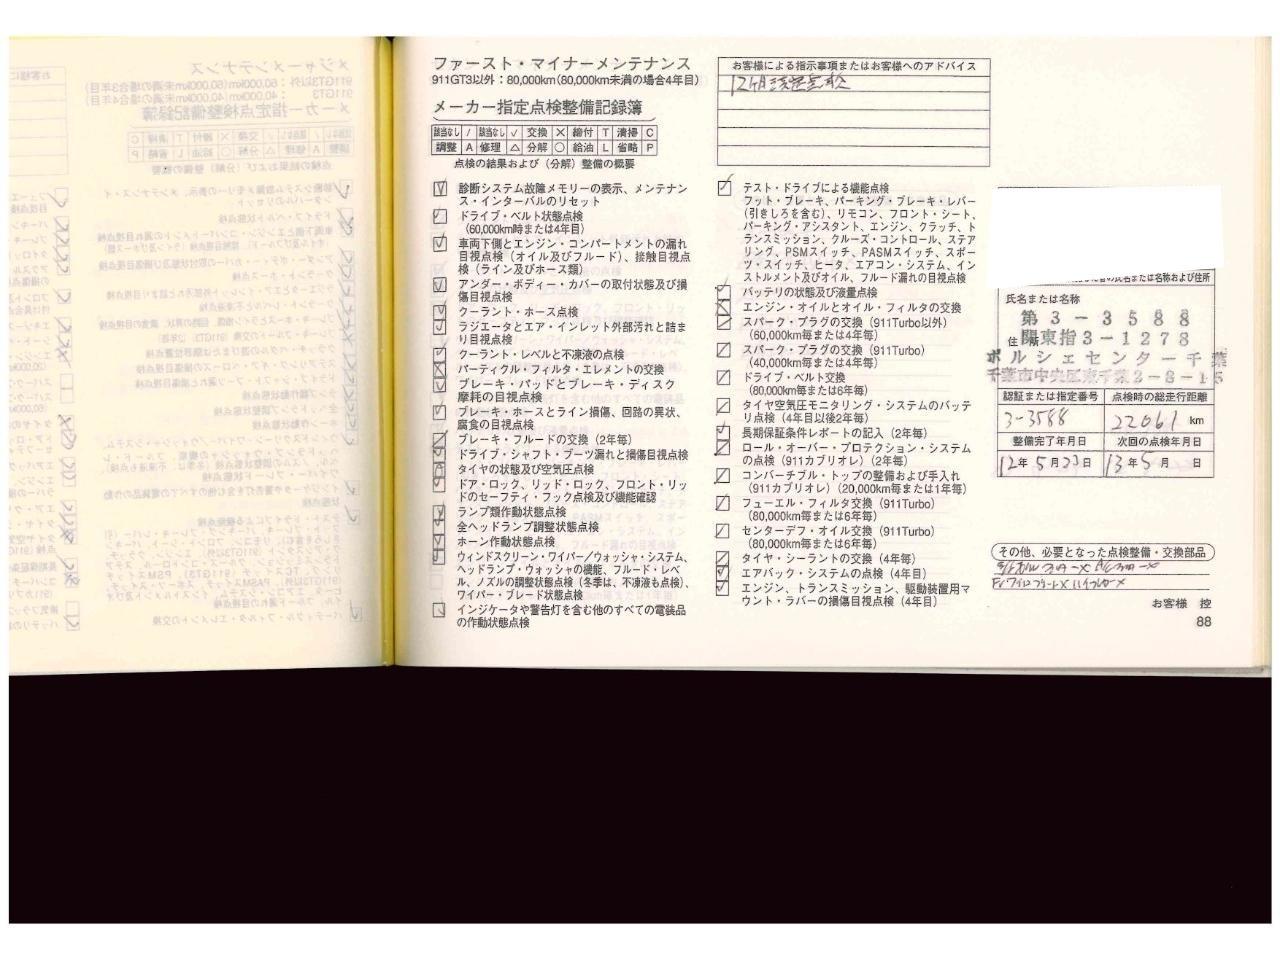 ファースト・マイナーメンテナンス
911GT3以外：80,000km(80,000km未満の場合4年目)
メーカー指定点検整備記録簿
該当なし / 該当なし ✓ 交換 × 締付 T 清掃 C
調整 A 修理 △ 分解 ○ 給油 L 省略 P
点検の結果および（分解）整備の概要
診断システム故障メモリーの表示、メンテナン
ス・インターバルのリセット
ドライブ・ベルト状態点検
(60,000km時または4年目)
車両下側とエンジン・コンパートメントの漏れ
目視点検（オイル及びフルード）、接触目視点
検（ライン及びホース類）
アンダー・ボディー・カバーの取付状態及び損
傷目視点検
クーラント・ホース点検
ラジエータとエア・インレット外部汚れと詰ま
り目視点検
クーラント・レベルと不凍液の点検
パーティクル・フィルタ・エレメントの交換
ブレーキ・パッドとブレーキ・ディスク
摩耗の目視点検
ブレーキ・ホースとライン損傷、回路の異状、
腐食の目視点検
ブレーキ・フルードの交換（2年毎）
ドライブ・シャフト・ブーツ漏れと損傷目視点検
タイヤの状態及び空気圧点検
ドア・ロック、リッド・ロック、フロント・リッ
ドのセーフティ・フック点検及び機能確認
ランプ類作動状態点検
全ヘッドランプ調整状態点検
ホーン作動状態点検
ウィンドスクリーン・ワイパー／ウォッシャ・システム、
ヘッドランプ・ウォッシャの機能、フルード・レベ
ル、ノズルの調整状態点検（冬季は、不凍液も点検）、
ワイパー・ブレード状態点検
インジケータや警告灯を含む他のすべての電装品
の作動状態点検
お客様による指示事項またはお客様へのアドバイス
12ヶ月法定点検
テスト・ドライブによる機能点検
フット・ブレーキ、パーキング・ブレーキ・レバー
(引きしろを含む)、リモコン、フロント・シート、
パーキング・アシスタント、エンジン、クラッチ、ト
ランスミッション、クルーズ・コントロール、ステア
リング、PSMスイッチ、PASMスイッチ、スポー
ツ・スイッチ、ヒータ、エアコン・システム、イン
ストルメント及びオイル、フルード漏れの目視点検
バッテリの状態及び液量点検
エンジン・オイルとオイル・フィルタの交換
スパーク・プラグの交換（911Turbo以外）
(60,000km毎または4年毎)
スパーク・プラグの交換（911Turbo）
(40,000km毎または4年毎)
ドライブ・ベルト交換
(80,000km毎または6年毎)
タイヤ空気圧モニタリング・システムのバッテ
リ点検（4年目以後2年毎）
長期保証条件レポートの記入（2年毎）
ロール・オーバー・プロテクション・システム
の点検（911カブリオレ）(2年毎)
コンバーチブル・トップの整備および手入れ
(911カブリオレ)（20,000km毎または1年毎）
フューエル・フィルタ交換（911Turbo）
(80,000km毎または6年毎)
センターデフ・オイル交換（911Turbo）
(80,000km毎または6年毎)
タイヤ・シーラントの交換（4年毎）
エアバック・システムの点検（4年目）
エンジン、トランスミッション、駆動装置用マ
ウント・ラバーの損傷目視点検（4年目）
の氏名または名称および住所
氏名または名称
第3-3588
住 関東指3-1278
ポルシェセンター千葉
千葉市中央区東千葉2-8-15
認証または指定番号 点検時の総走行距離
3-3588 22061 km
整備完了年月日 次回の点検年月日
12年 5月 23日 13年 5月 日
その他、必要となった点検整備・交換部品
お客様 控
88